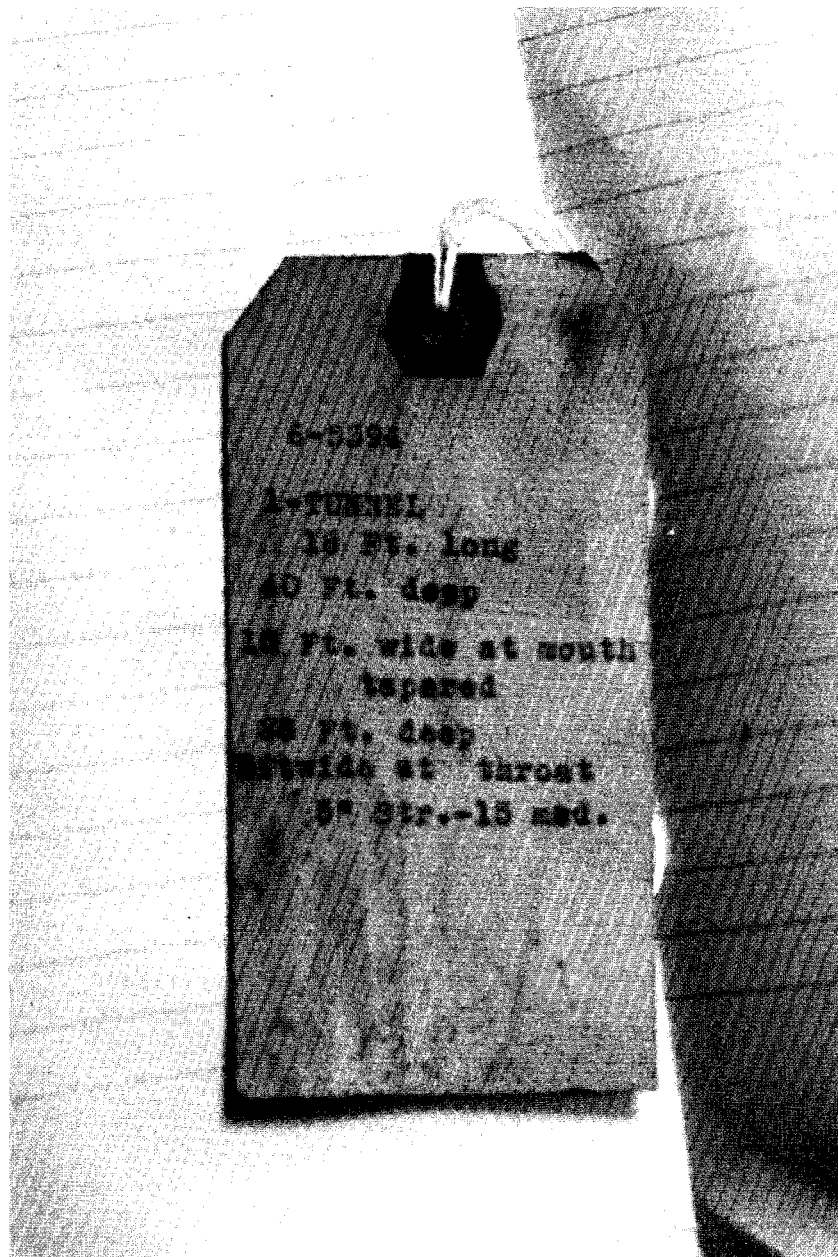 6-5394
1-TUNNEL
Ft. long
Ft. deep
Ft. wide at mouth
tapered
Ft. deep
wide at throat
5" Str.-15 med.